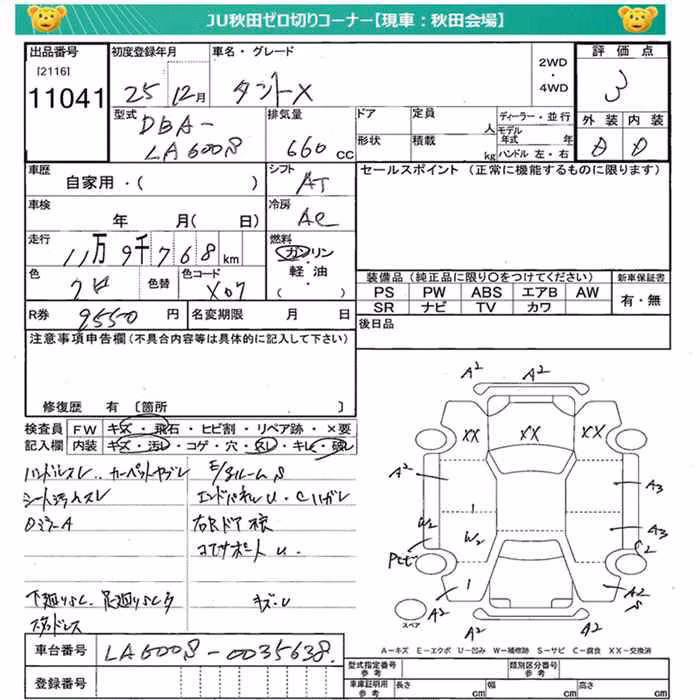 JU秋田ゼロ切りコーナー【現車：秋田会場】
出品番号 初度登録年月 車名・グレード 2WD・4WD 評価点
[2116]
11041 25 12月 タントX 3
型式 DBA-LA600S 排気量 660cc ドア 定員 人 ディーラー・並行 外装 内装
形状 積載 kg モデル年式 年 ハンドル 左・右 D D
車歴 自家用・( ) シフト AT セールスポイント（正常に機能するものに限ります）
車検 年 月( 日) 冷房 AC
走行 11万9千768km 燃料 ガソリン・軽油・( )
色 クロ 色替 色コード X07 装備品（純正品に限り○をつけてください） 新車保証書
PS PW ABS エアB AW 有・無
SR ナビ TV カワ
R券 9550円 名変期限 月 日 後日品
注意事項申告欄(不具合内容等は具体的に記入して下さい)
修復歴 有 〔箇所 〕
検査員 FW キズ・飛石・ヒビ割・リペア跡・×要
記入欄 内装 キズ・汚レ・コゲ・穴・スレ・キレ・破レ
ハンドルスレ カーペットヤブレ E/gルームS
シート汚レスレ エンドパネルU・Cハガレ
DミラーA 右Rドア
コアサポートU
下廻りSC. 足廻りSC キズ・U
スタッドレス
A2 A2 A2
XX XX XX
A2 A3
W2 W2 A3
S2
A2 A2 A2 S
スペア
A－キズ E－エクボ U－凹み W－補修跡 S－サビ C－腐食 XX－交換済
車台番号 LA600S-0035638
登録番号
型式指定番号 参考 類別区分番号 参考
車庫証明用 参考 長さ cm 幅 cm 高さ cm